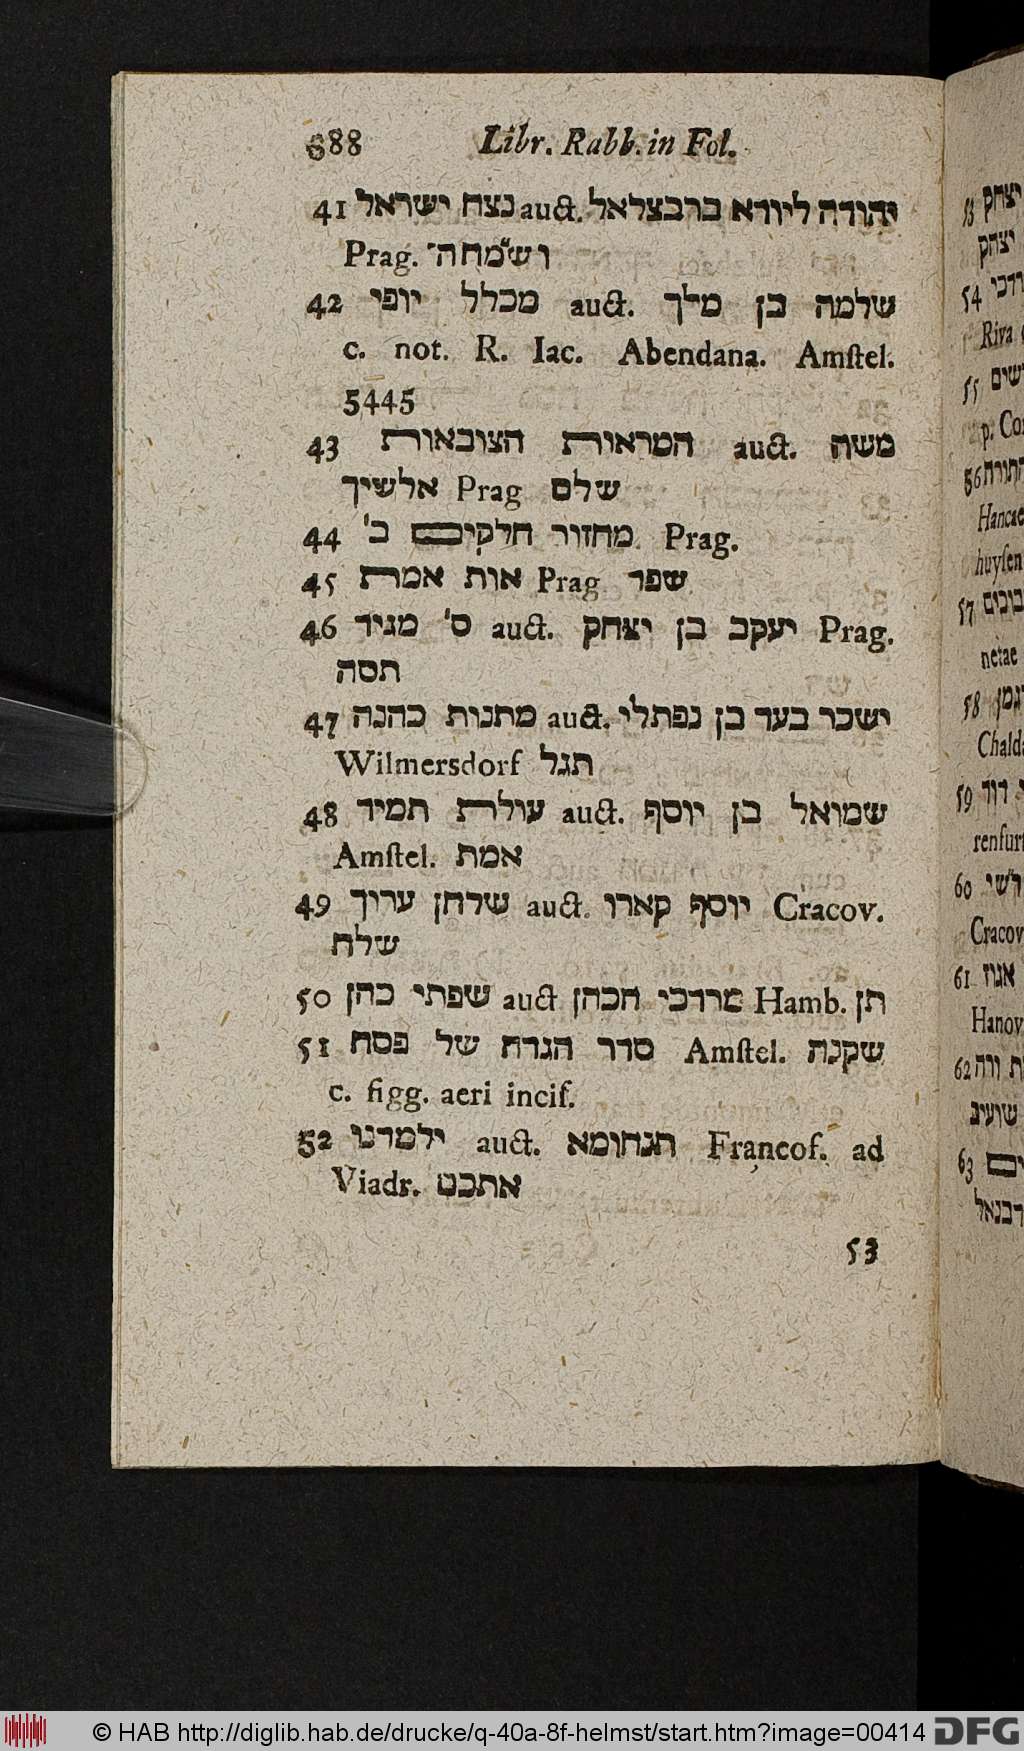 688 Libr. Rabb. in Fol.
41 נצח ישראל auct. יהודה ליווא ברבצלאל
Prag. ושמחה
42 מכלל יופי auct. שלמה בן מלך
c. not. R. Iac. Abendana. Amſtel.
5445
43 המראות הצובאות auct. משה
אלשיך Prag שלם
44 מחזור חלקים ב' Prag.
45 אות אמת Prag שפר
46 ס' מגיד auct. יעקב בן יצחק Prag.
תסה
47 מתנות כהנה auct. ישכר בער בן נפתלי
Wilmersdorf תגל
48 עולת תמיד auct. שמואל בן יוסף
Amſtel. אמת
49 שלחן ערוך auct. יוסף קארו Cracov.
שלח
50 שפתי כהן auct מרדכי הכהן Hamb. תן
51 סדר הגדה של פסח Amſtel. שקנה
c. figg. aeri inciſ.
52 ילמדנו auct. תנחומא Francof. ad
Viadr. אתכם
53
53 יצחק
יצחק
54
Riva
55
p. Co
56 התורה
Hancae
huyſen
57
netae
58
Chalda
59 דוד
renfurt
60 רשי
Cracov
61 אגוז
Hanov
62
63
© HAB http://diglib.hab.de/drucke/q-40a-8f-helmst/start.htm?image=00414 DFG